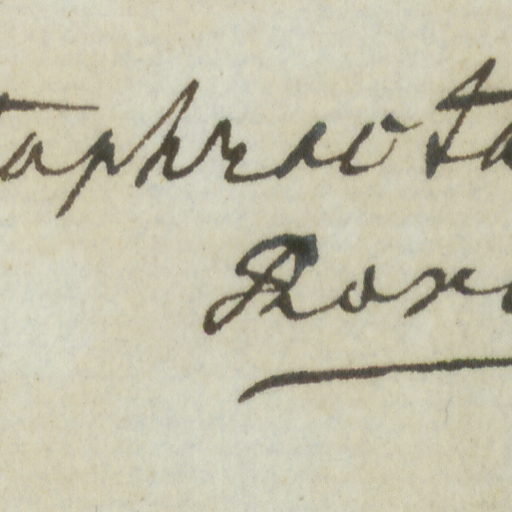 taphracta
Rox